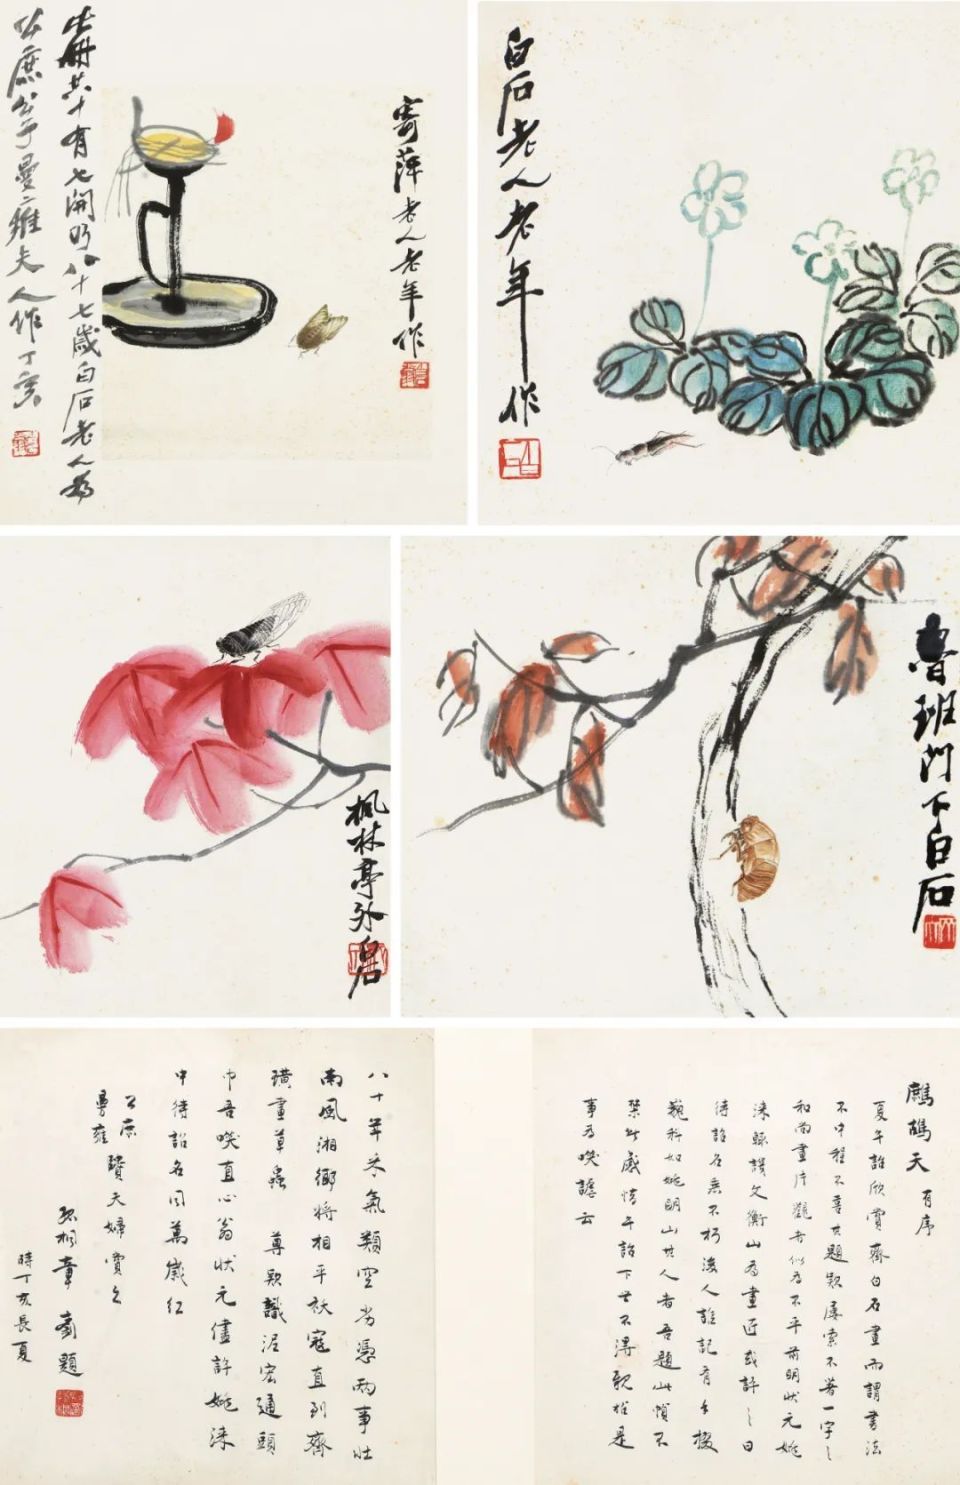 寄萍老人老年作
此冊共十有七開乃八十七歲白石老人為
公庶公子曼雍夫人作丁亥
白石老人老年作
楓林亭外白石
魯班門下白石
鷓鴣天 有序
夏午詒欣賞齊白石畫而謂書法
不中程不喜其題款屢索不著一字之
和尚畫片觀者似為不平前明狀元姚
淶輕謾文衡山為畫匠或許之曰
待詔名垂不朽後人誰記有手掇
巍科如姚明山其人者吾題此幀不
禁此感惜午詒下世不得歌椎是
事為唉謔云
八十年 氣類空 憑兩事壯
南風湘鄉將相平 寇直到齊
璜畫草蟲 尊款識泥宏通頭
巾吾唉直心翁狀元儘許姚淶
中待詔名同萬歲紅
公庶
曼雍 賢夫婦賞之
孤桐章 釗題
時丁亥長夏